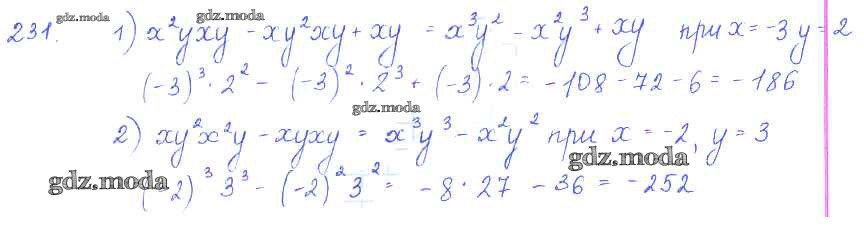 231. 1) x²yxy - xy²xy + xy = x³y² - x²y³ + xy при x = -3 y = 2
(-3)³ · 2² - (-3)² · 2³ + (-3) · 2 = -108 - 72 - 6 = -186
2) xy²x²y - xyxy = x³y³ - x²y² при x = -2, y = 3
(-2)³ 3³ - (-2)² 3² = -8 · 27 - 36 = -252
gdz.moda
gdz.moda
gdz.moda
gdz.moda
gdz.moda